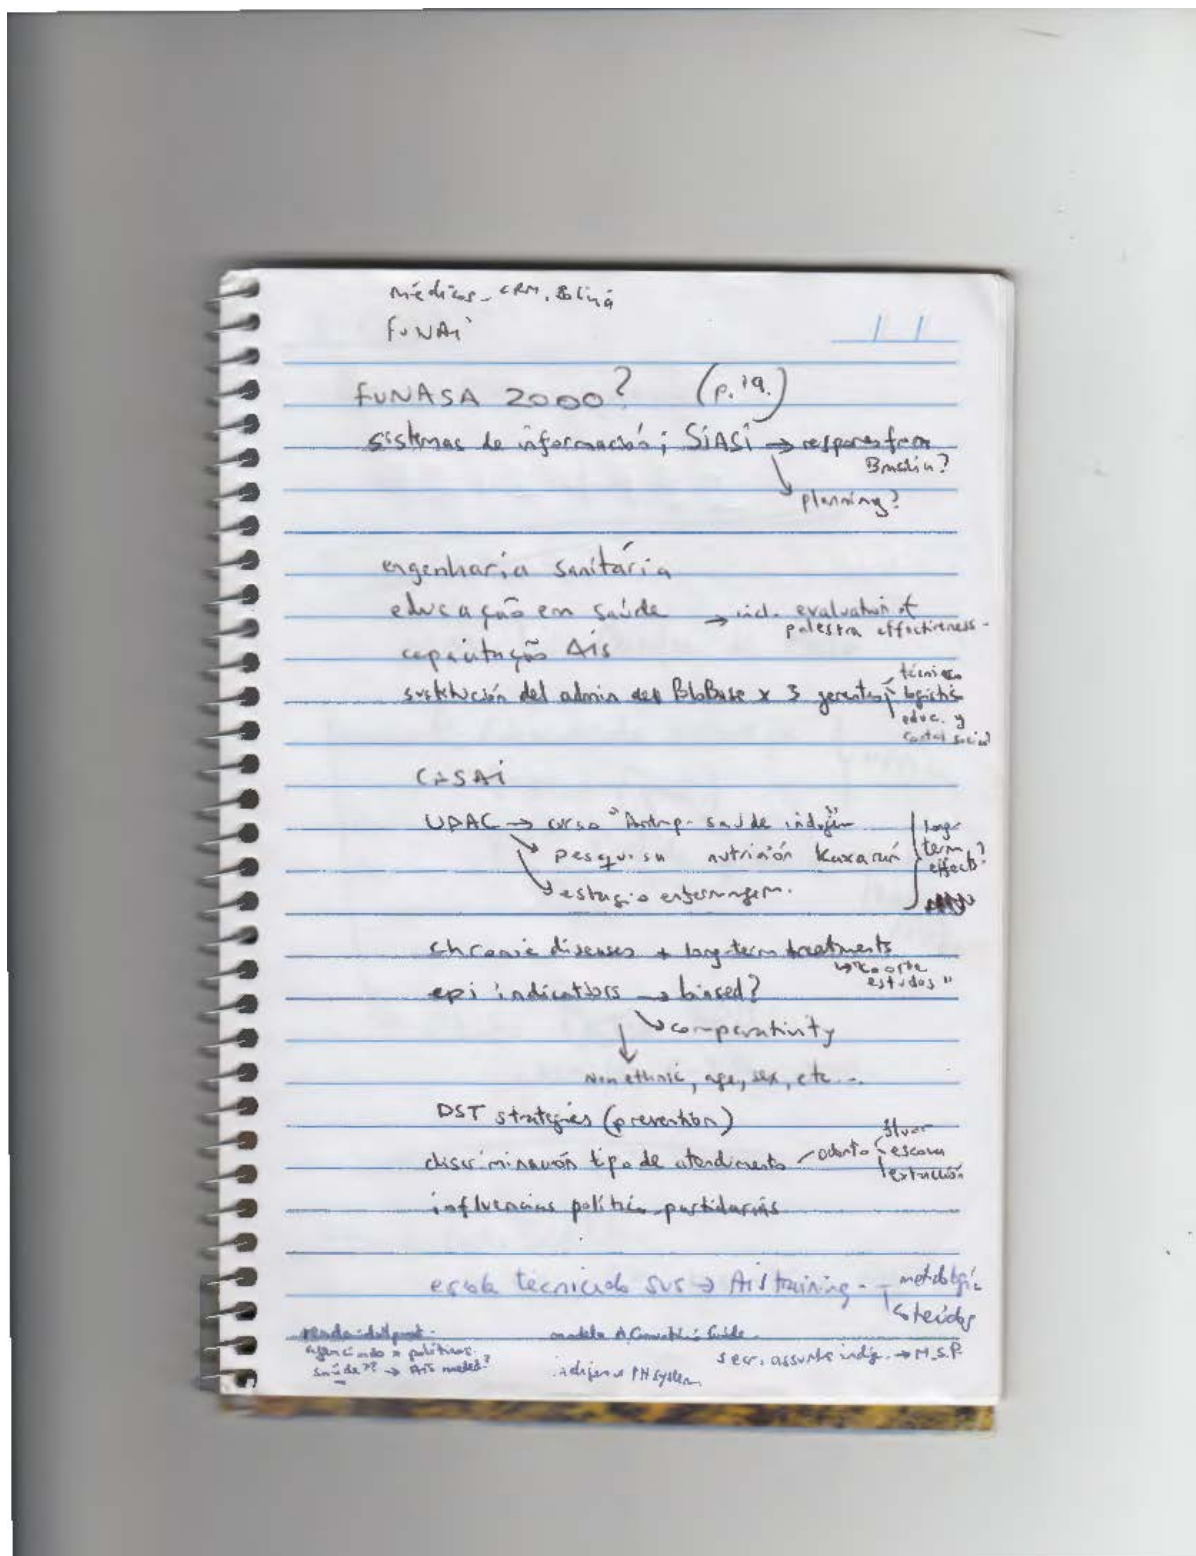 médicos - CRM, Bolivia
FUNAI
FUNASA 2000? (p. 19.)
sistemas de información; SIASI → response from
Brasília?
planning?
engenharia sanitária
educação em saúde → incl. evaluation of
palestra effectiveness -
capacitação AIS
sustitución del admin del Polo Base x 3 gerentes
técnico
logístic
educ. y
control social
CASAI
UFAC → curso "Antrop. saúde indígen"
pesquisa nutrición Kaxarari
estagio enfermagem.
long-
term
effects?
chronic diseases + long-term treatments
estudos"
epi indicators → biased?
comparativity
non ethnic, age, sex, etc...
DST strategies (prevention)
discriminación tipo de atendimento - odonto
fluor
escova
extracción
influencias política partidarias
escola tecnica do SUS → AIS training -
metodologic
políticos
saúde?? → AIS
secr. assunt indíg. → M.S.P.
indigenous PH system